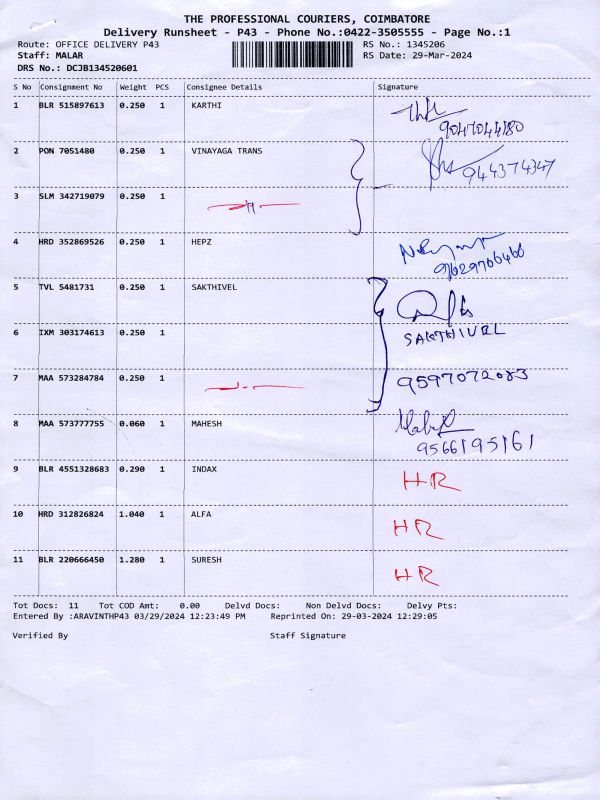 THE PROFESSIONAL COURIERS, COIMBATORE
Delivery Runsheet - P43 - Phone No.:0422-3505555 - Page No.:1
Route: OFFICE DELIVERY P43 RS No.: 1345206
Staff: MALAR RS Date: 29-Mar-2024
DRS No.: DCJB134520601
S No Consignment No Weight PCS Consignee Details Signature
1 BLR 515897613 0.250 1 KARTHI
9047044180
2 PON 7051480 0.250 1 VINAYAGA TRANS
944374347
3 SLM 342719079 0.250 1
4 HRD 352869526 0.250 1 HEPZ
9629706466
5 TVL 5481731 0.250 1 SAKTHIVEL
6 IXM 303174613 0.250 1 SAKTHIVEL
7 MAA 573284784 0.250 1 9597072083
8 MAA 573777755 0.060 1 MAHESH
9566195161
9 BLR 4551328683 0.290 1 INDAX HR
10 HRD 312826824 1.040 1 ALFA HR
11 BLR 220666450 1.280 1 SURESH HR
Tot Docs: 11 Tot COD Amt: 0.00 Delvd Docs: Non Delvd Docs: Delvy Pts:
Entered By :ARAVINTHP43 03/29/2024 12:23:49 PM Reprinted On: 29-03-2024 12:29:05
Verified By Staff Signature